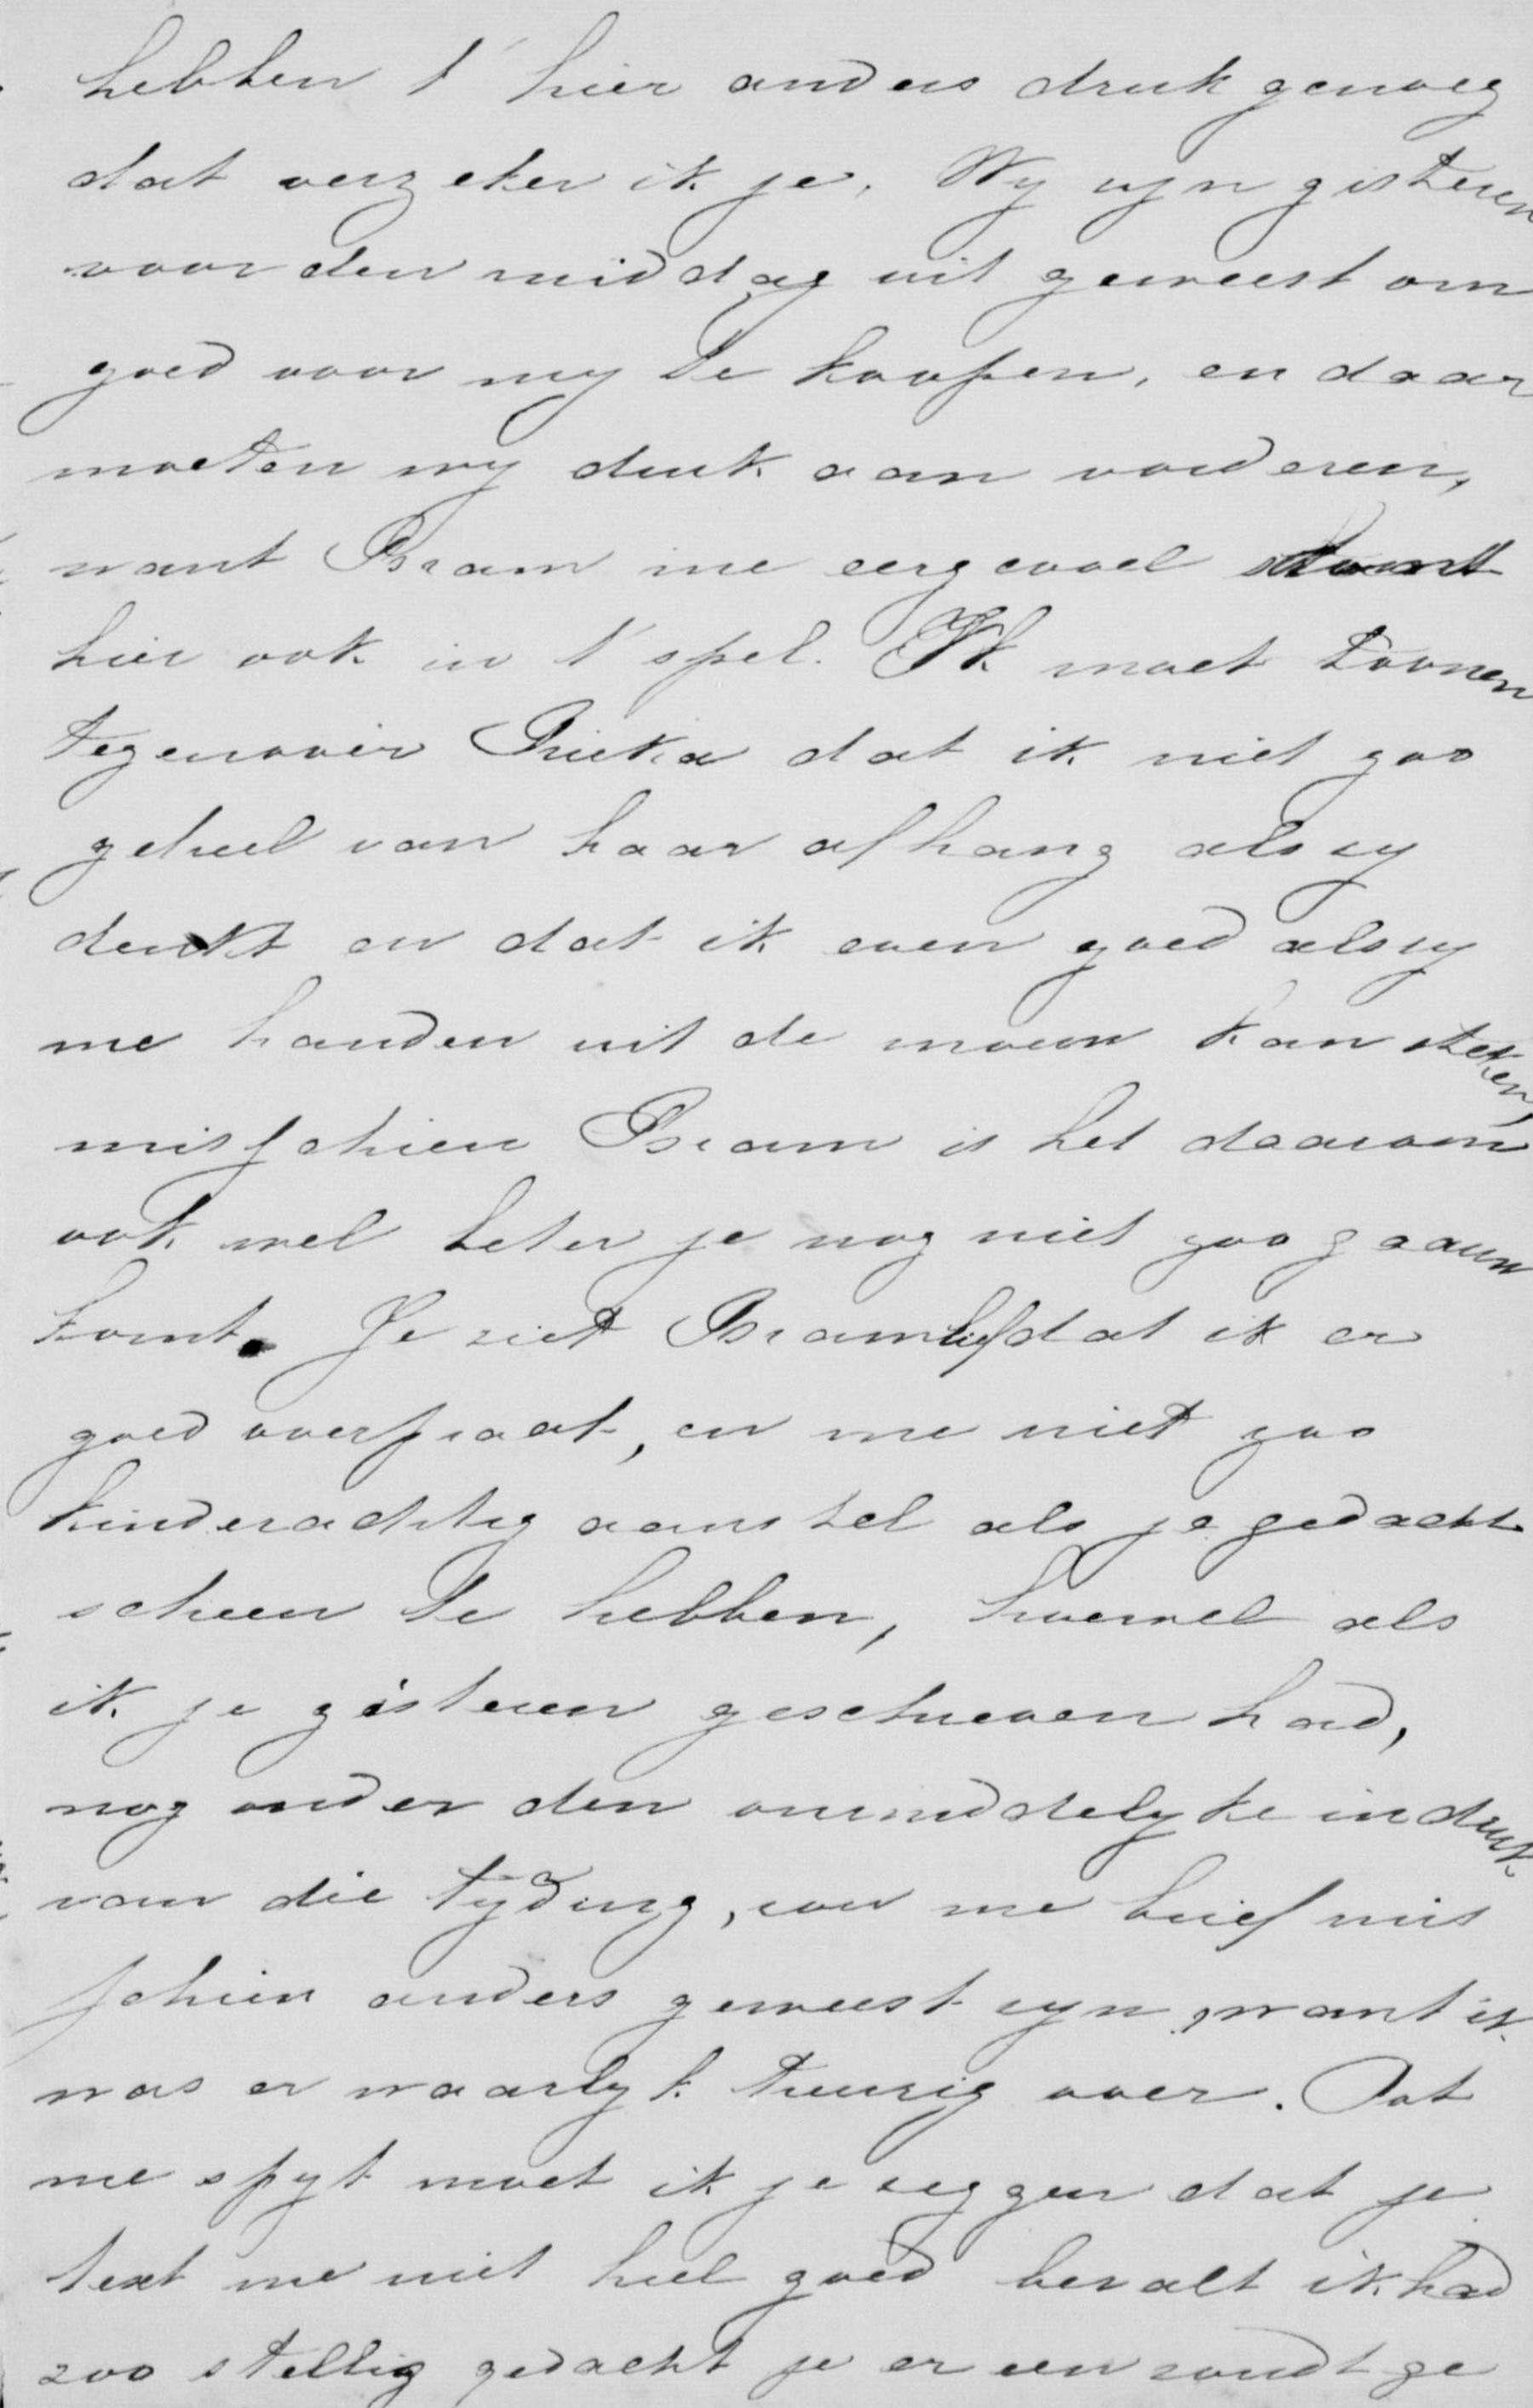 hebben t' hier anders druk genoeg
dat verzeker ik je. Wy zyn gisteren
voor den middag uit geweest om
goed voor my te koopen, en daar
moeten wy druk aan vorderen,
want Bram me eergevoel komt
hier ook in t' spel. Ik moet toonen
tegenover Rieka dat ik niet zoo
geheel van haar afhang als zy
denkt en dat ik even goed als zy
me handen uit de mouw kan steken,
misschien Bram is het daarom
ook wel beter je nog niet zoo gaauw
komt. Je ziet Bramlief dat ik er
goed over praat, en me niet zoo
kinderachtig aanstel als je gedacht
scheen te hebben, hoewel als
ik je gisteren geschreven had,
nog onder den onmiddelyke indruk
van die tyding, zou me brief mis
schien anders geweest zyn, want ik
was er waarlyk treurig over. Dat
me spyt moet ik je zeggen dat je
text me niet heel goed bevalt ik had
zoo stellig gedacht je er een zoudt ge